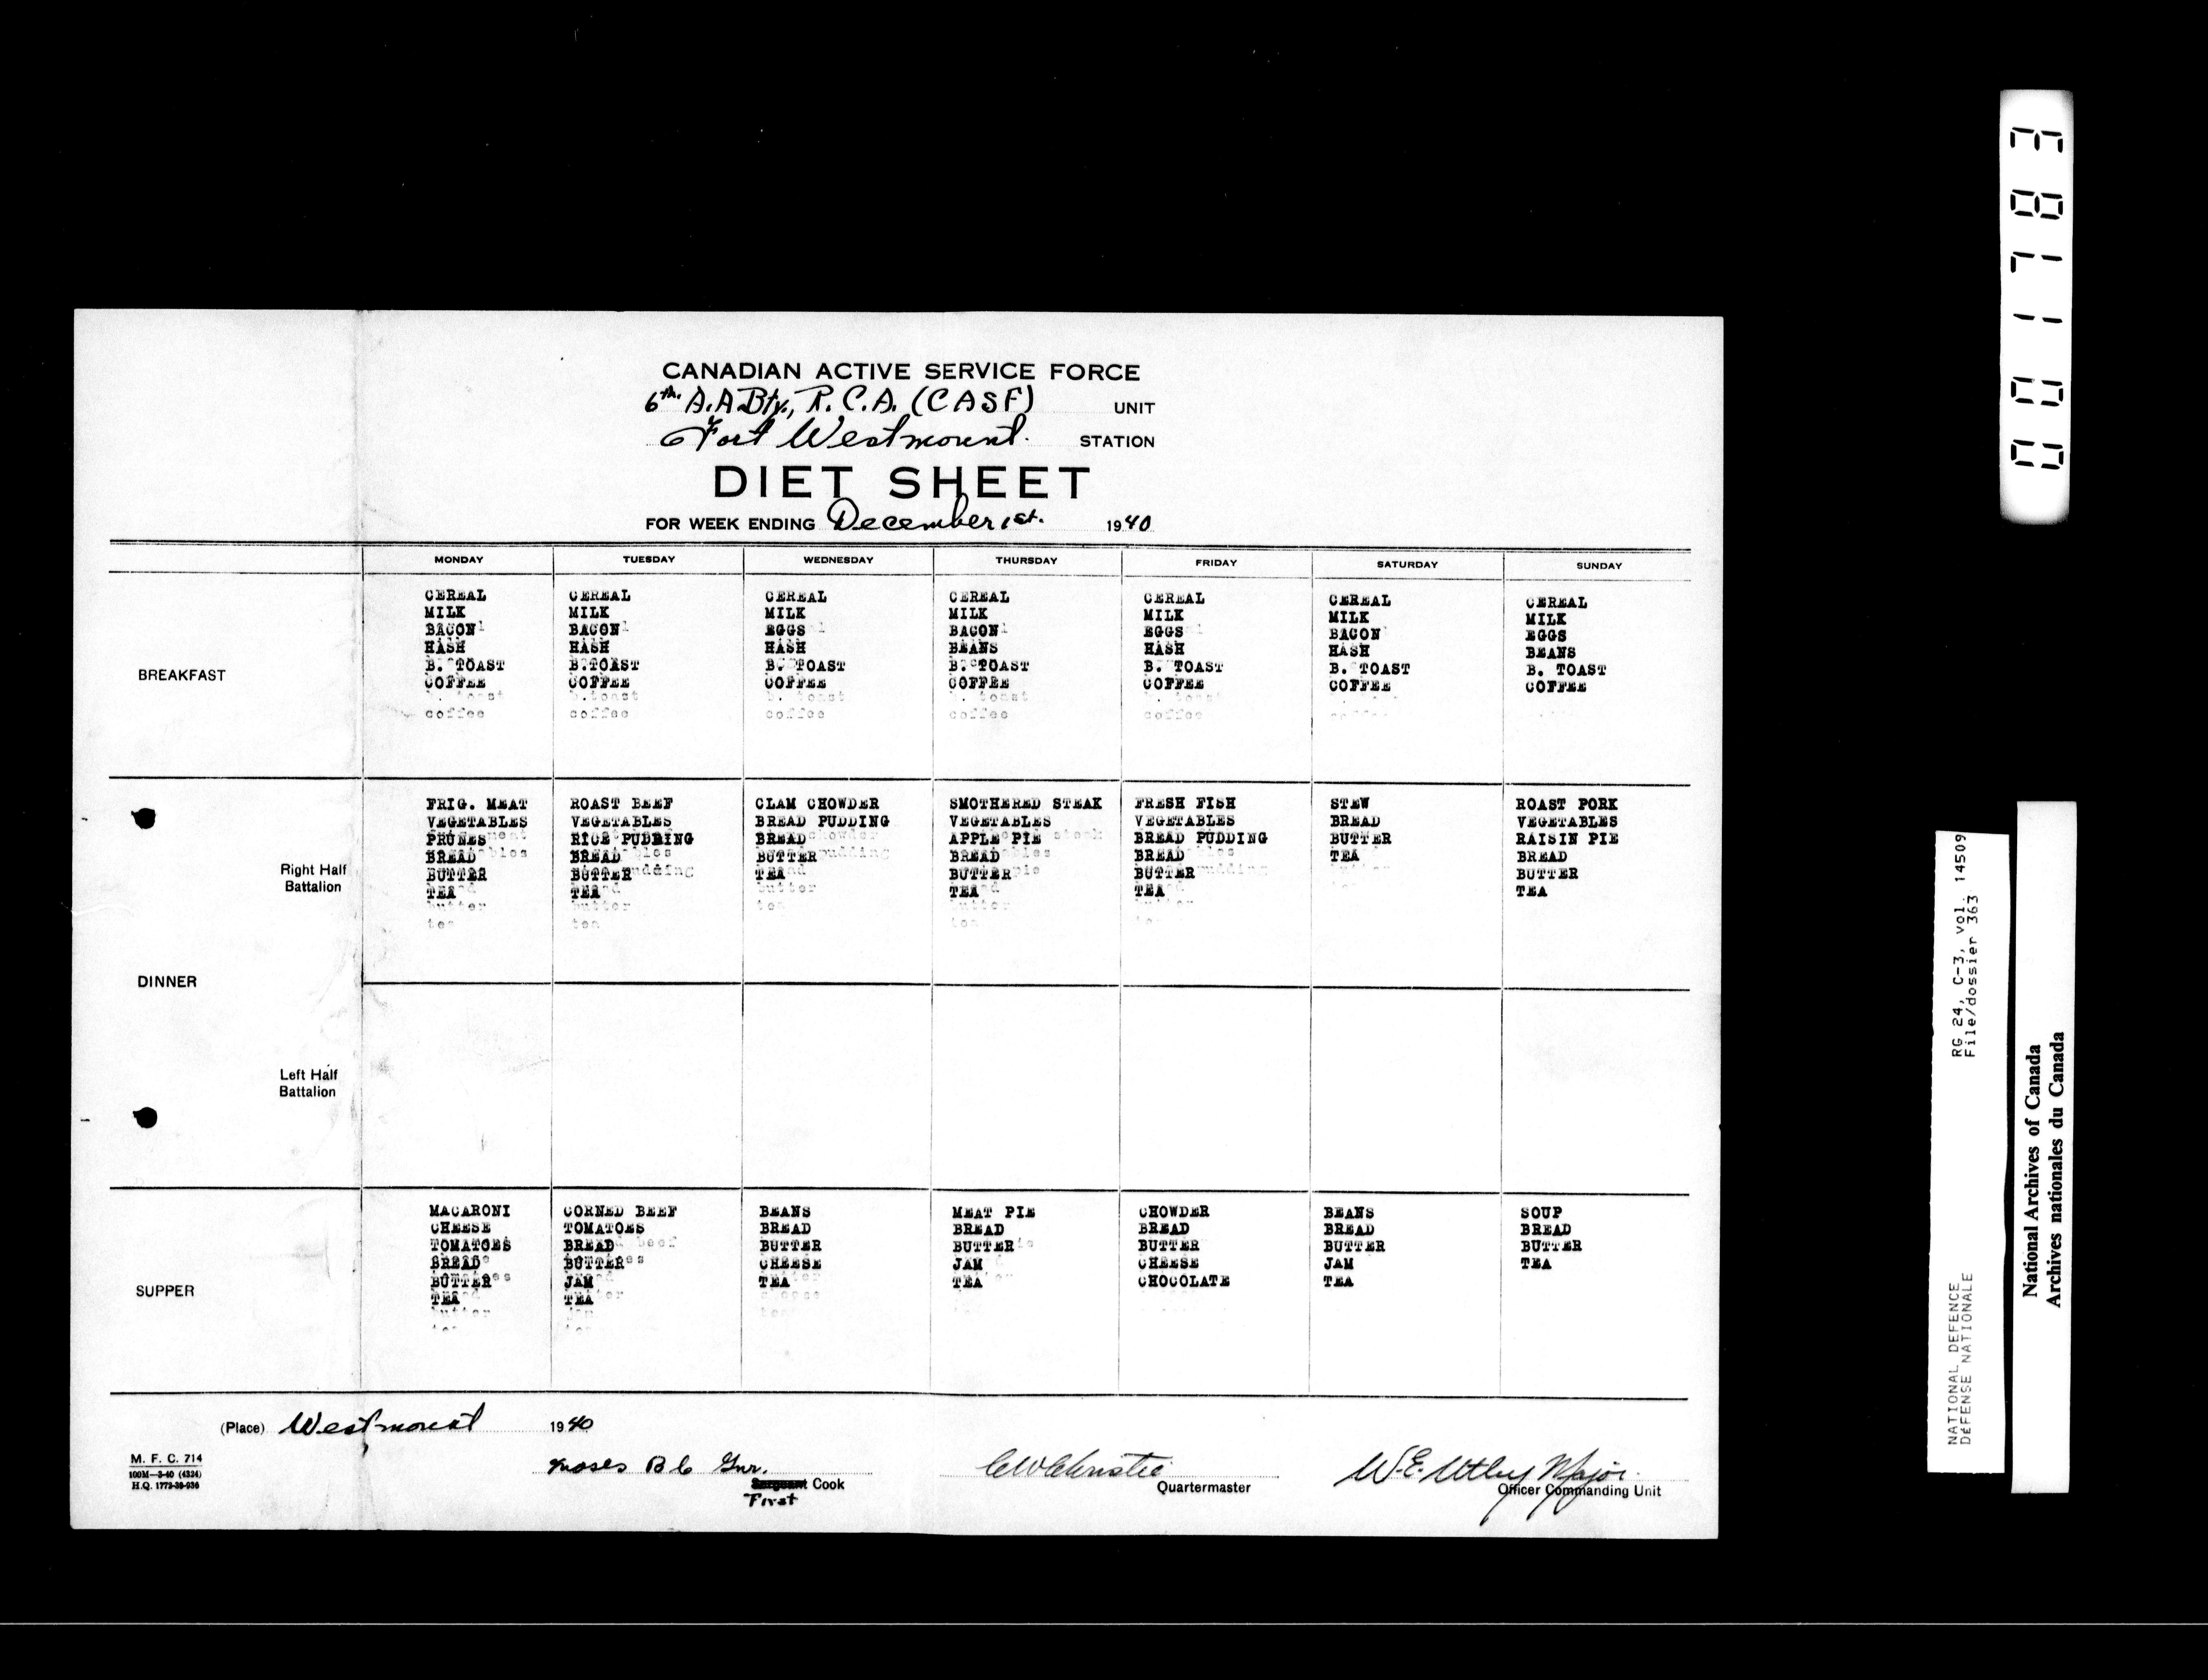 CANADIAN ACTIVE SERVICE FORCE
6th. A.A Bty., R.C.A. (CASF) UNIT
Fort Westmount. STATION
DIET SHEET
FOR WEEK ENDING December 1st. 1940
MONDAY TUESDAY WEDNESDAY THURSDAY FRIDAY SATURDAY SUNDAY
BREAKFAST
CEREAL CEREAL CEREAL CEREAL CEREAL CEREAL CEREAL
MILK MILK MILK MILK MILK MILK MILK
BACON BACON EGGS BACON EGGS BACON EGGS
HASH HASH HASH BEANS HASH HASH BEANS
B. TOAST B.TOAST B. TOAST B. TOAST B. TOAST B. TOAST B. TOAST
COFFEE COFFEE COFFEE COFFEE COFFEE COFFEE COFFEE
DINNER
Right Half
Battalion
FRIG. MEAT ROAST BEEF CLAM CHOWDER SMOTHERED STEAK FRESH FISH STEW ROAST PORK
VEGETABLES VEGETABLES BREAD PUDDING VEGETABLES VEGETABLES BREAD VEGETABLES
PRUNES RICE PUDDING BREAD APPLE PIE BREAD PUDDING BUTTER RAISIN PIE
BREAD BREAD BUTTER BREAD BREAD TEA BREAD
BUTTER BUTTER TEA BUTTER BUTTER BUTTER
TEA TEA TEA TEA TEA
Left Half
Battalion
SUPPER
MACARONI CORNED BEEF BEANS MEAT PIE CHOWDER BEANS SOUP
CHEESE TOMATOES BREAD BREAD BREAD BREAD BREAD
TOMATOES BREAD BUTTER BUTTER BUTTER BUTTER BUTTER
BREAD BUTTER CHEESE JAM CHEESE JAM TEA
BUTTER JAM TEA TEA CHOCOLATE TEA
TEA TEA
(Place) Westmount 1940
M. F. C. 714
100M—3-40 (4324)
H.Q. 1772-39-936
Moses B C Gnr.
Sergeant Cook
First
C W Christie
Quartermaster
W.E. Utley Major.
Officer Commanding Unit
001783
RG 24, C-3, vol. 14509
File/dossier 363
NATIONAL DEFENCE
DÉFENSE NATIONALE
National Archives of Canada
Archives nationales du Canada